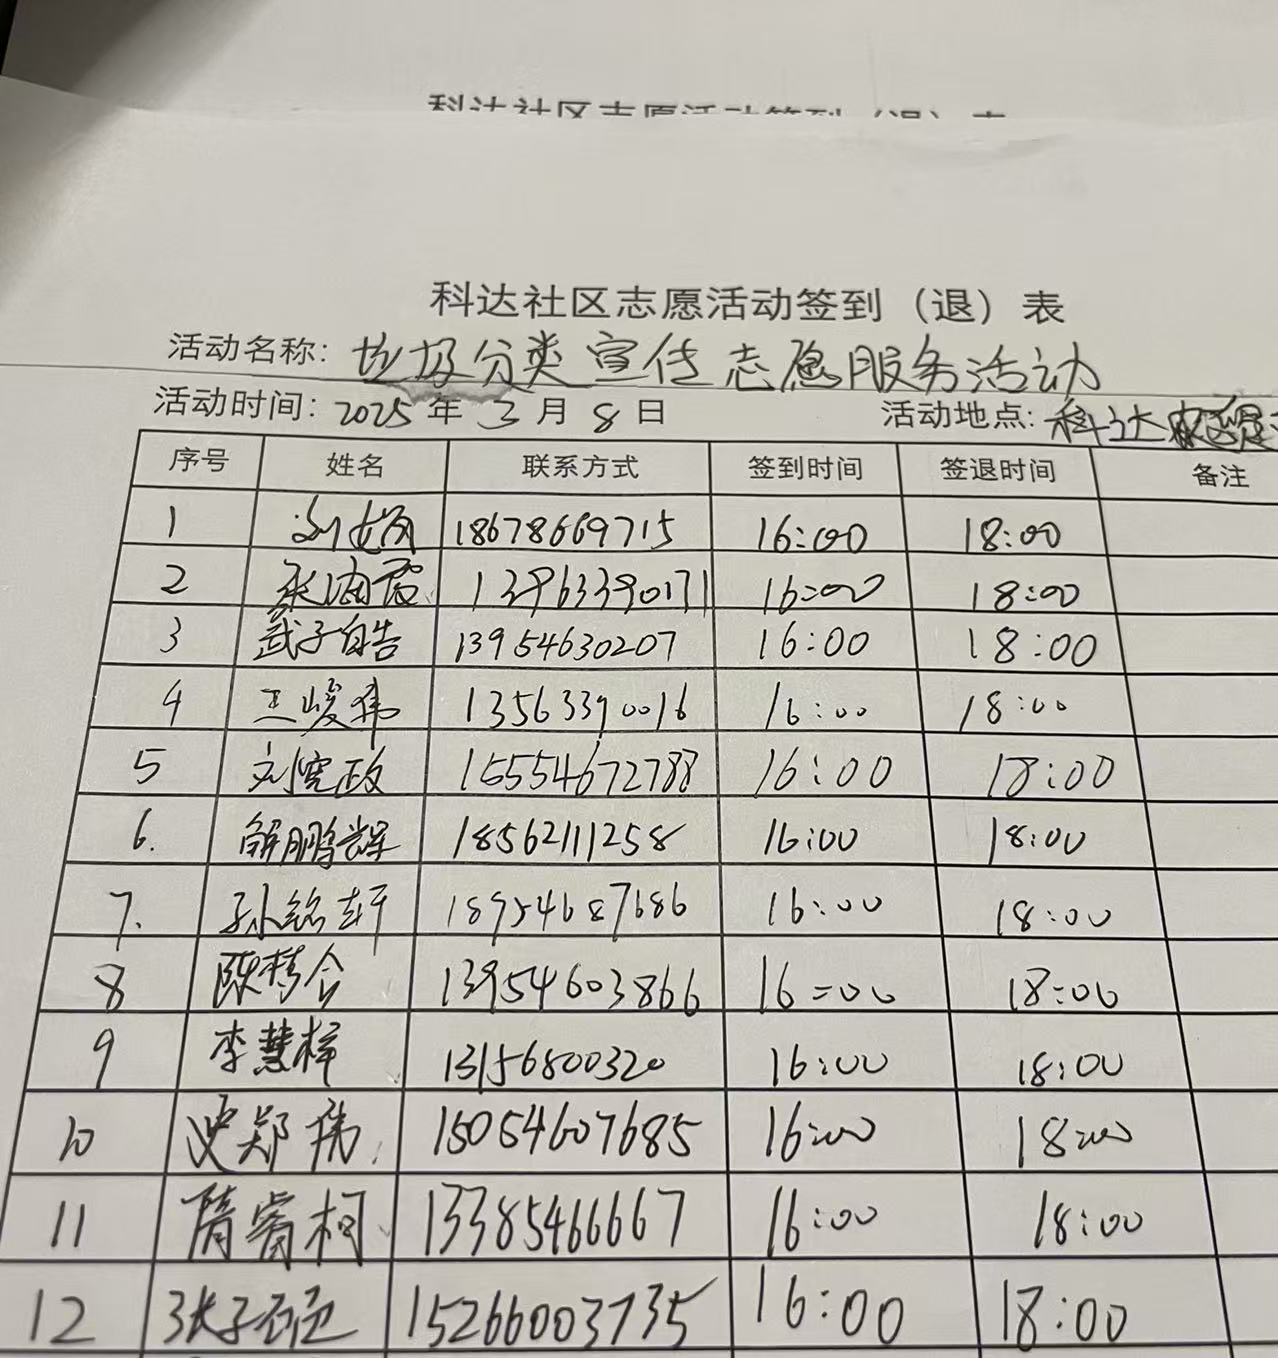 科达社区志愿活动签到（退）表
科达社区志愿活动签到（退）表
活动名称：垃圾分类宣传志愿服务活动
活动时间：2025年3月8日 活动地点：科达
序号 姓名 联系方式 签到时间 签退时间 备注
1 刘 18678669715 16:00 18:00
2 张海霞 13963390171 16:00 18:00
3 武子皓 13954630207 16:00 18:00
4 王峻伟 13563390016 16:00 18:00
5 刘宪政 15554672788 16:00 18:00
6. 解鹏辉 18562111258 16:00 18:00
7. 孙铭轩 18954687686 16:00 18:00
8 陈梦会 13954603866 16:00 18:00
9 李慧梓 13156800320 16:00 18:00
10 史郑伟 15054607685 16:00 18:00
11 隋睿柯 13385466667 16:00 18:00
12 张子 15266003735 16:00 18:00